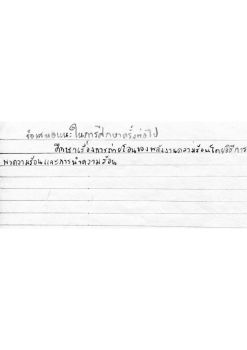 ข้อเสนอแนะในการศึกษาครั้งต่อไป
ศึกษาเรื่องการถ่ายโอนของพลังงานความร้อนโดยวิธีการ
พาความร้อนและการนำความร้อน